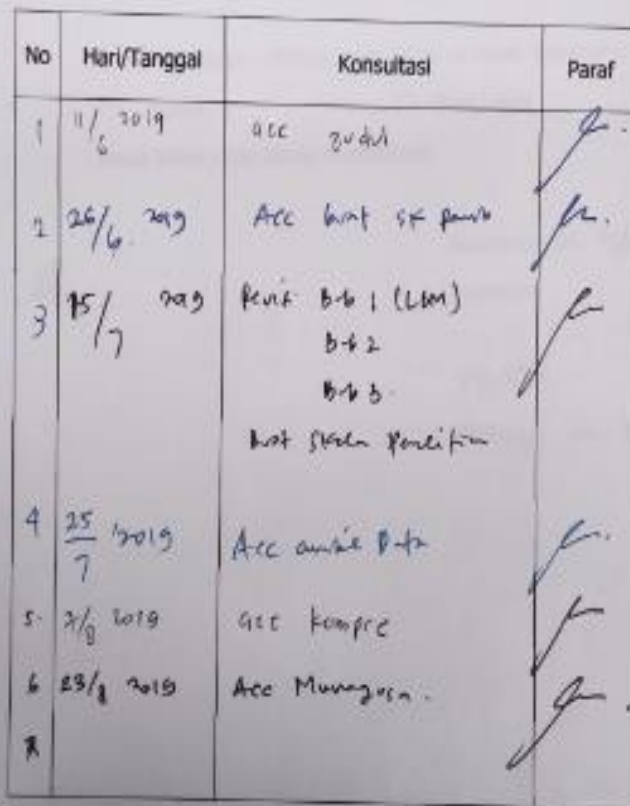 No Hari/Tanggal Konsultasi Paraf
1 11/6 2019 acc Judul
2 26/6 2019 Acc buat SK
3 15/7 2019 Revisi Bab 1 (LBM)
Bab 2
Bab 3
buat skala penelitian
4 25/7 2019 Acc Data
5. 7/8 2019 acc kompre
6 23/8 2019 Acc Munaqosa.